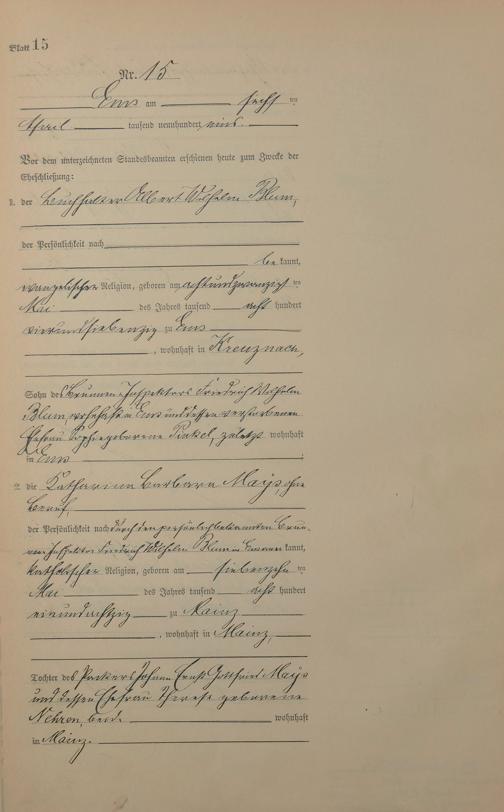 Blatt 15
Nr. 15
Ems am sechs ten
April tausend neunhundert eins.
Vor dem unterzeichneten Standesbeamten erschienen heute zum Zwecke der
Eheschließung:
1. der Buchhalter Albert Wilhelm Blum,
der Persönlichkeit nach
be kannt,
evangelischer Religion, geboren am achtundzwanzigsten
Mai des Jahres tausend acht hundert
vierundsiebenzig zu Ems
, wohnhaft in Kreuznach,
Sohn des Brunnen-Inspektors Friedrich Wilhelm
Blum, wohnhaft in Ems und dessen verstorbenen
Ehefrau Sophie geborene zuletzt wohnhaft
in Ems
2. die Katharina Barbara Mays, ohne
Beruf,
der Persönlichkeit nach durch den persönlich bekannten Brun-
nen-Inspektor Friedrich Wilhelm Blum in Ems kannt,
katholischer Religion, geboren am siebenzehn ten
Mai des Jahres tausend acht hundert
einundachtzig zu Mainz
, wohnhaft in Mainz,
Tochter des Packers Johann Ernst Gottfried Mays
und dessen Ehefrau Therese geborene
Nehren, beide wohnhaft
in Mainz.